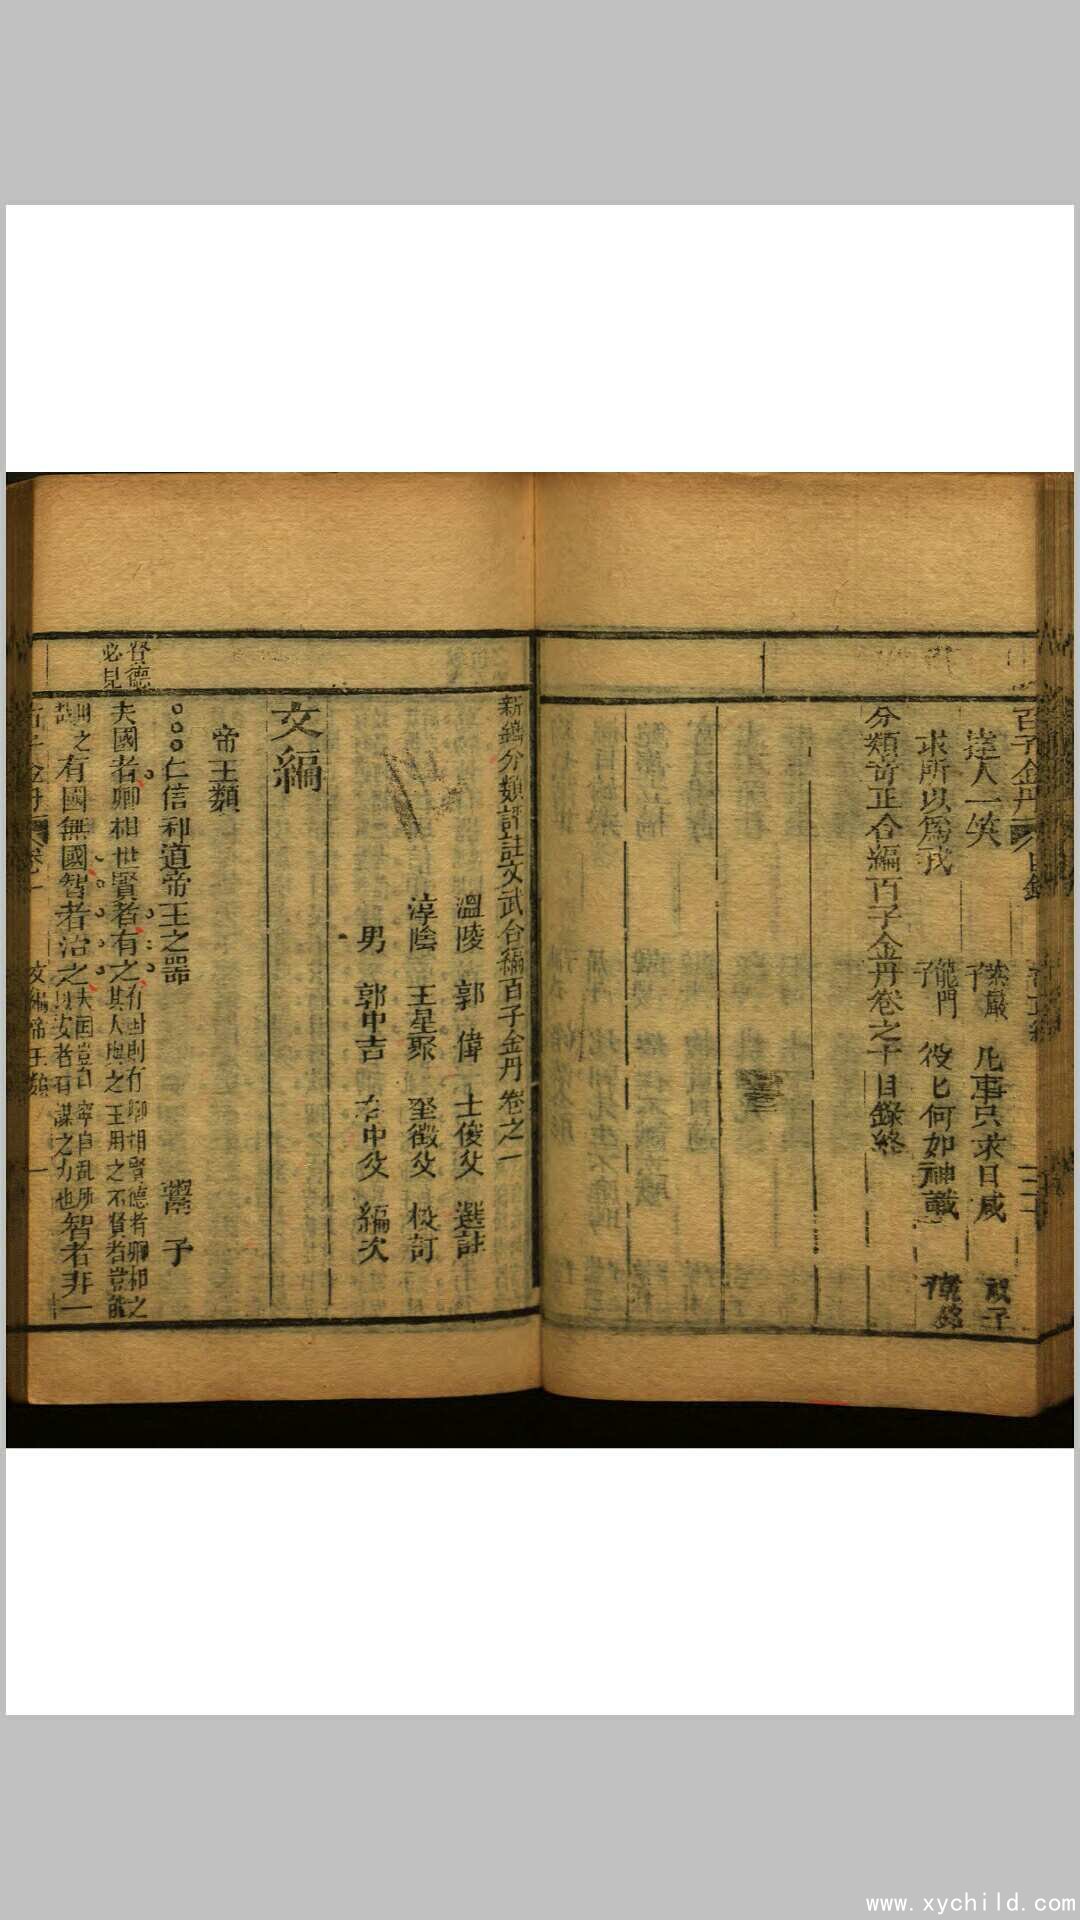 百子金丹 目錄
達人一笑 紫巖子 凡事只求日減 祝子
求所以為我 龍門子 役匕何如神識
分類奇正合編百子金丹卷之十目錄終
新鐫分類評註文武合編百子金丹卷之一
溫陵 郭 偉 士俊父 選註
淳陰 王星聚 奎徵父 校訂
男 郭中吉 右中父 編次
文編
帝王類
仁信和道帝王之器 鬻子
賢德
必見
夫國者卿相世賢者有之
有國則有卿相賢德者卿相之
其人與之王用之不賢者豈能
有國無國智者治之
大國豈自寧自亂所
以安者有謀之力也
智者非一
百子金丹 卷一 文編帝王類 一
www.xychild.com